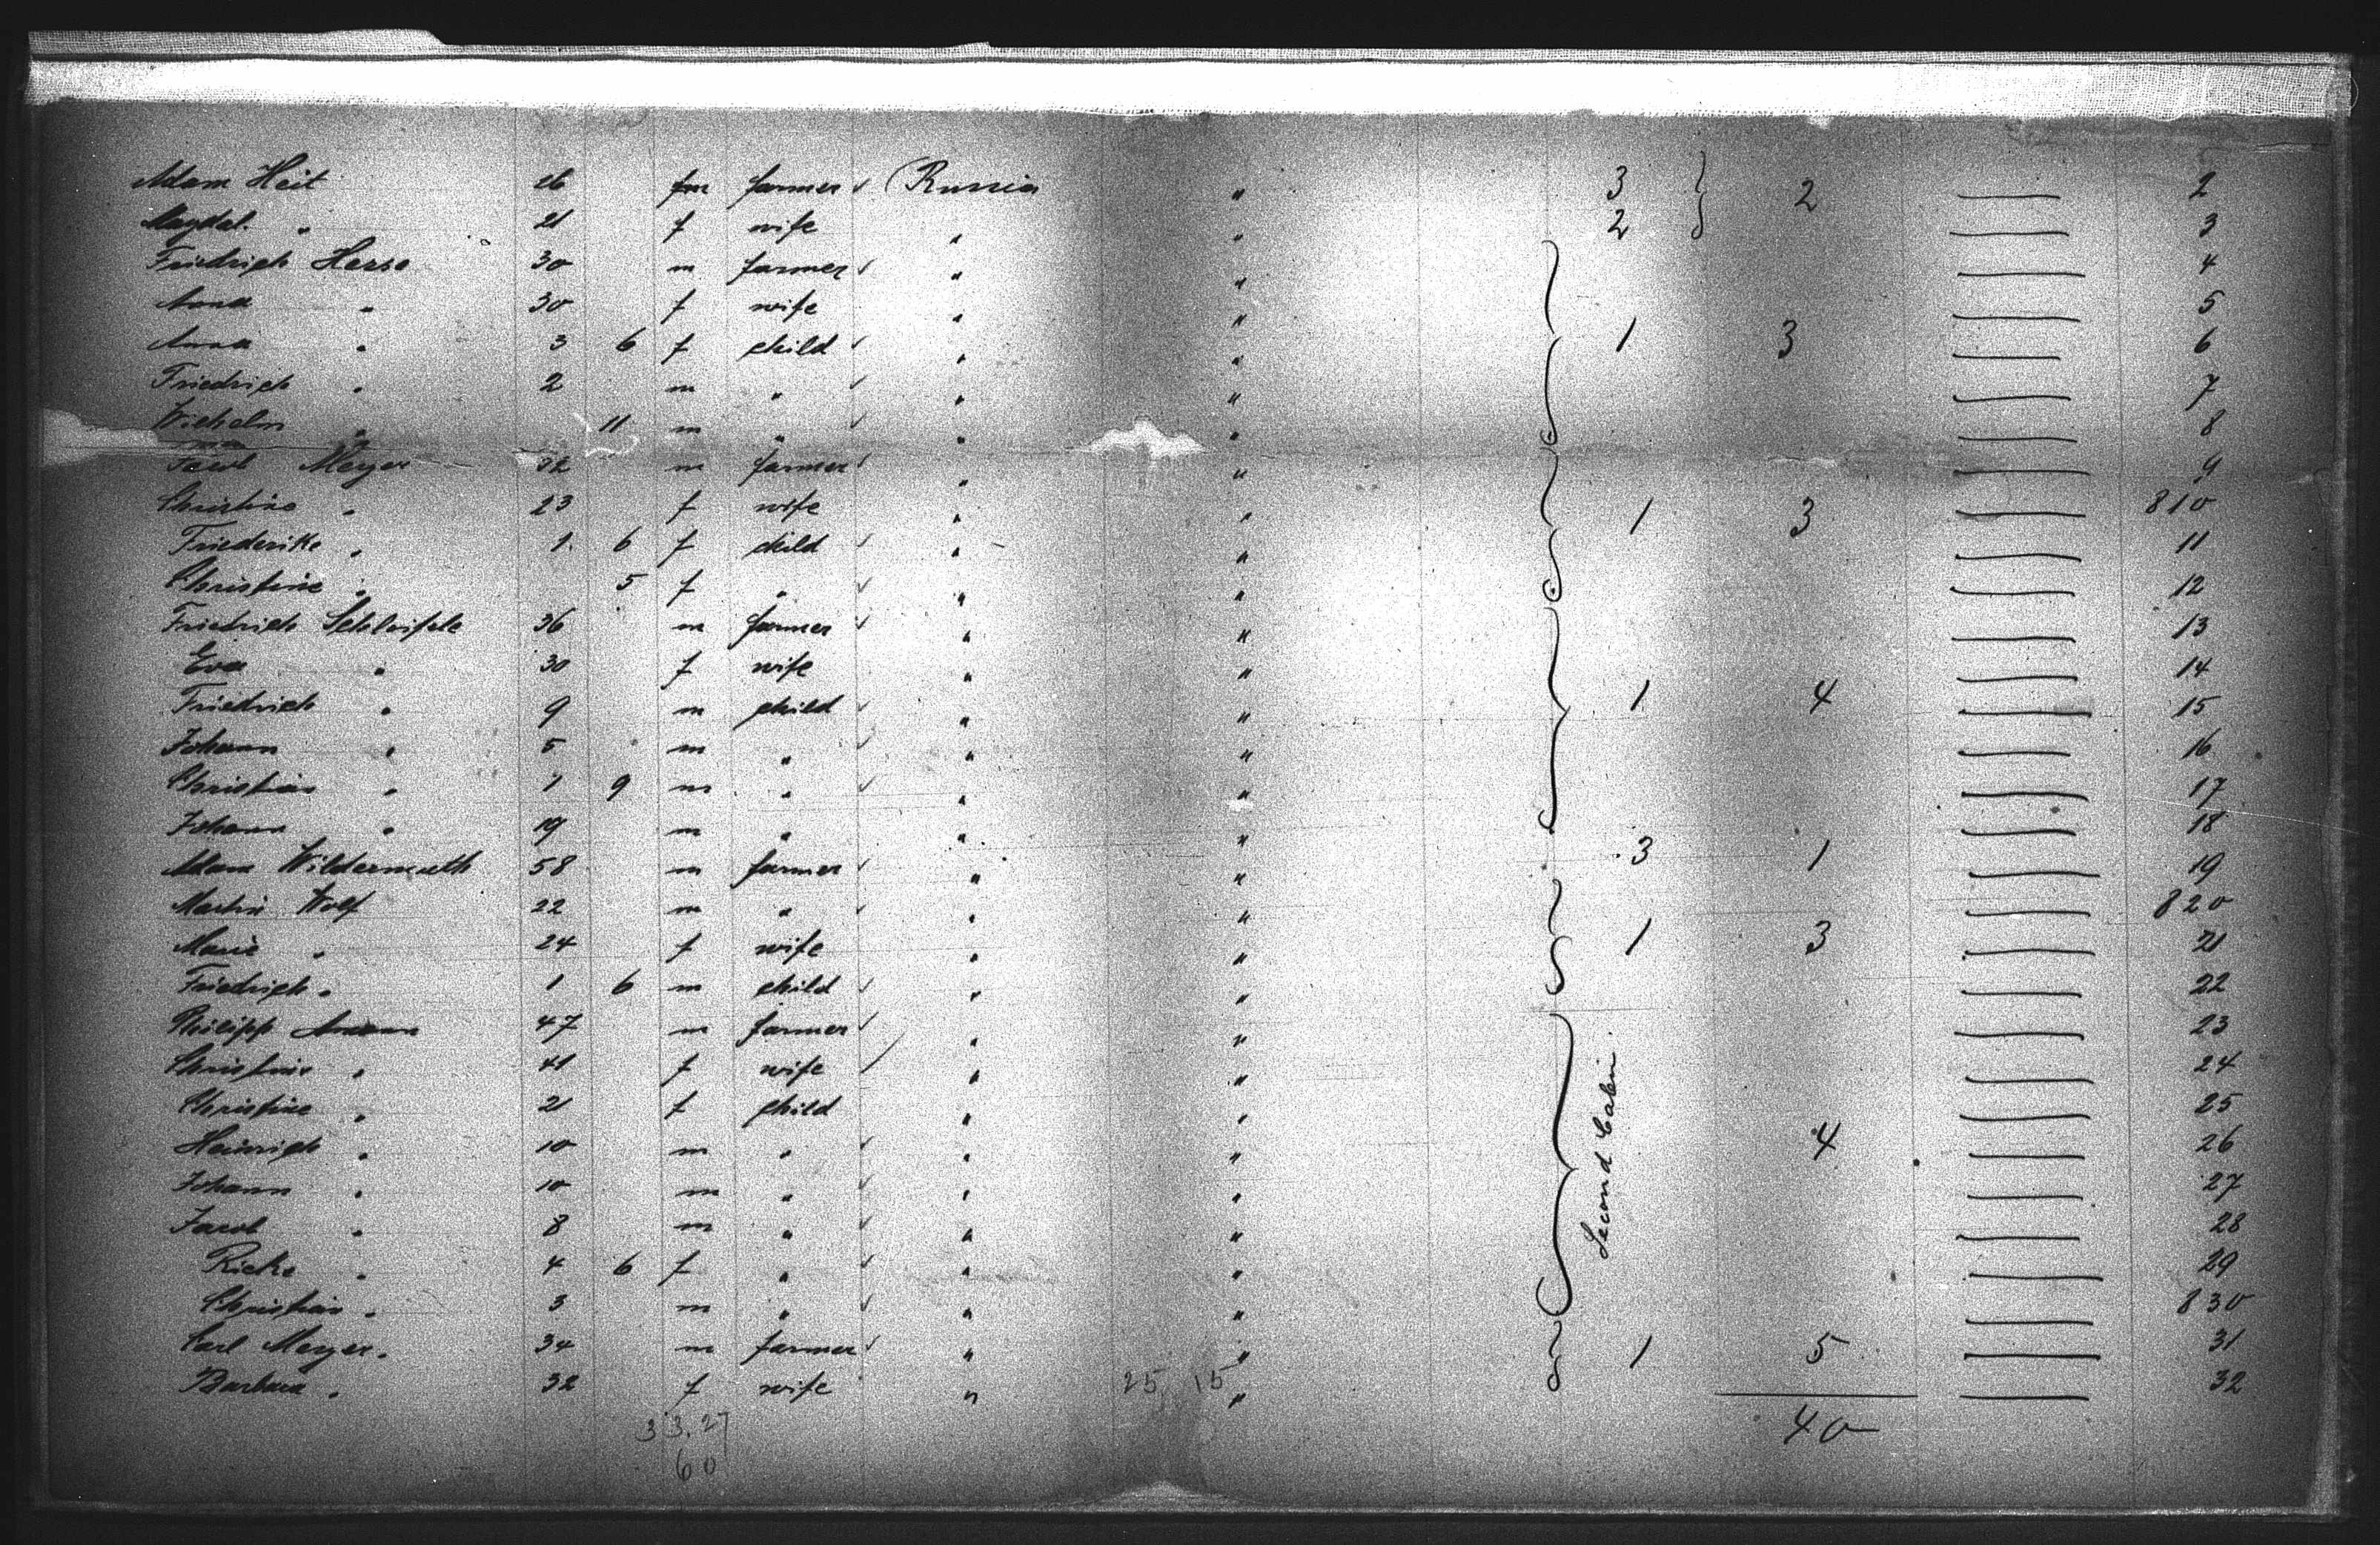 Adam Heit 26 m farmer ✓ Russia " 3 2 2
Magdal. " 21 f wife " " 2 3
Friedrich Hersa 30 m farmer ✓ " " 4
Anna " 30 f wife " " 5
Anna " 3 6 f child ✓ " " 1 3 6
Friedrich " 2 m " ✓ " " 7
Wilhelm " 11 m " ✓ " " 8
Jacob Meyer 32 m farmer ✓ " " 9
Christine " 23 f wife " " 1 3 810
Friederike " 1 6 f child ✓ " " 11
Christine " 5 f " ✓ " " 12
Friedrich 36 m farmer ✓ " " 13
Eva " 30 f wife " " 14
Friedrich " 9 m child ✓ " " 1 4 15
Johann " 5 m " ✓ " " 16
Christian " 1 9 m " ✓ " " 17
Johann " 19 m " " " 18
Adam Wildermuth 58 m farmer ✓ " " 3 1 19
Martin Wolf 22 m " ✓ " " 820
Marie " 24 f wife " " 1 3 21
Friedrich " 1 6 m child ✓ " " 22
Philipp 47 m farmer ✓ " " 23
Christine " 41 f wife ✓ " " Second Cabin 24
Christine " 21 f child " " 25
Heinrich " 10 m " ✓ " " 4 26
Johann " 10 m " ✓ " " 27
Jacob " 8 m " ✓ " " 28
Rieke " 4 6 f " ✓ " " 29
Christian " 3 m " ✓ " " 830
Carl Meyer. 34 m farmer ✓ " " 1 5 31
Barbara " 32 f wife " 25 15 " 32
33.27 40
60